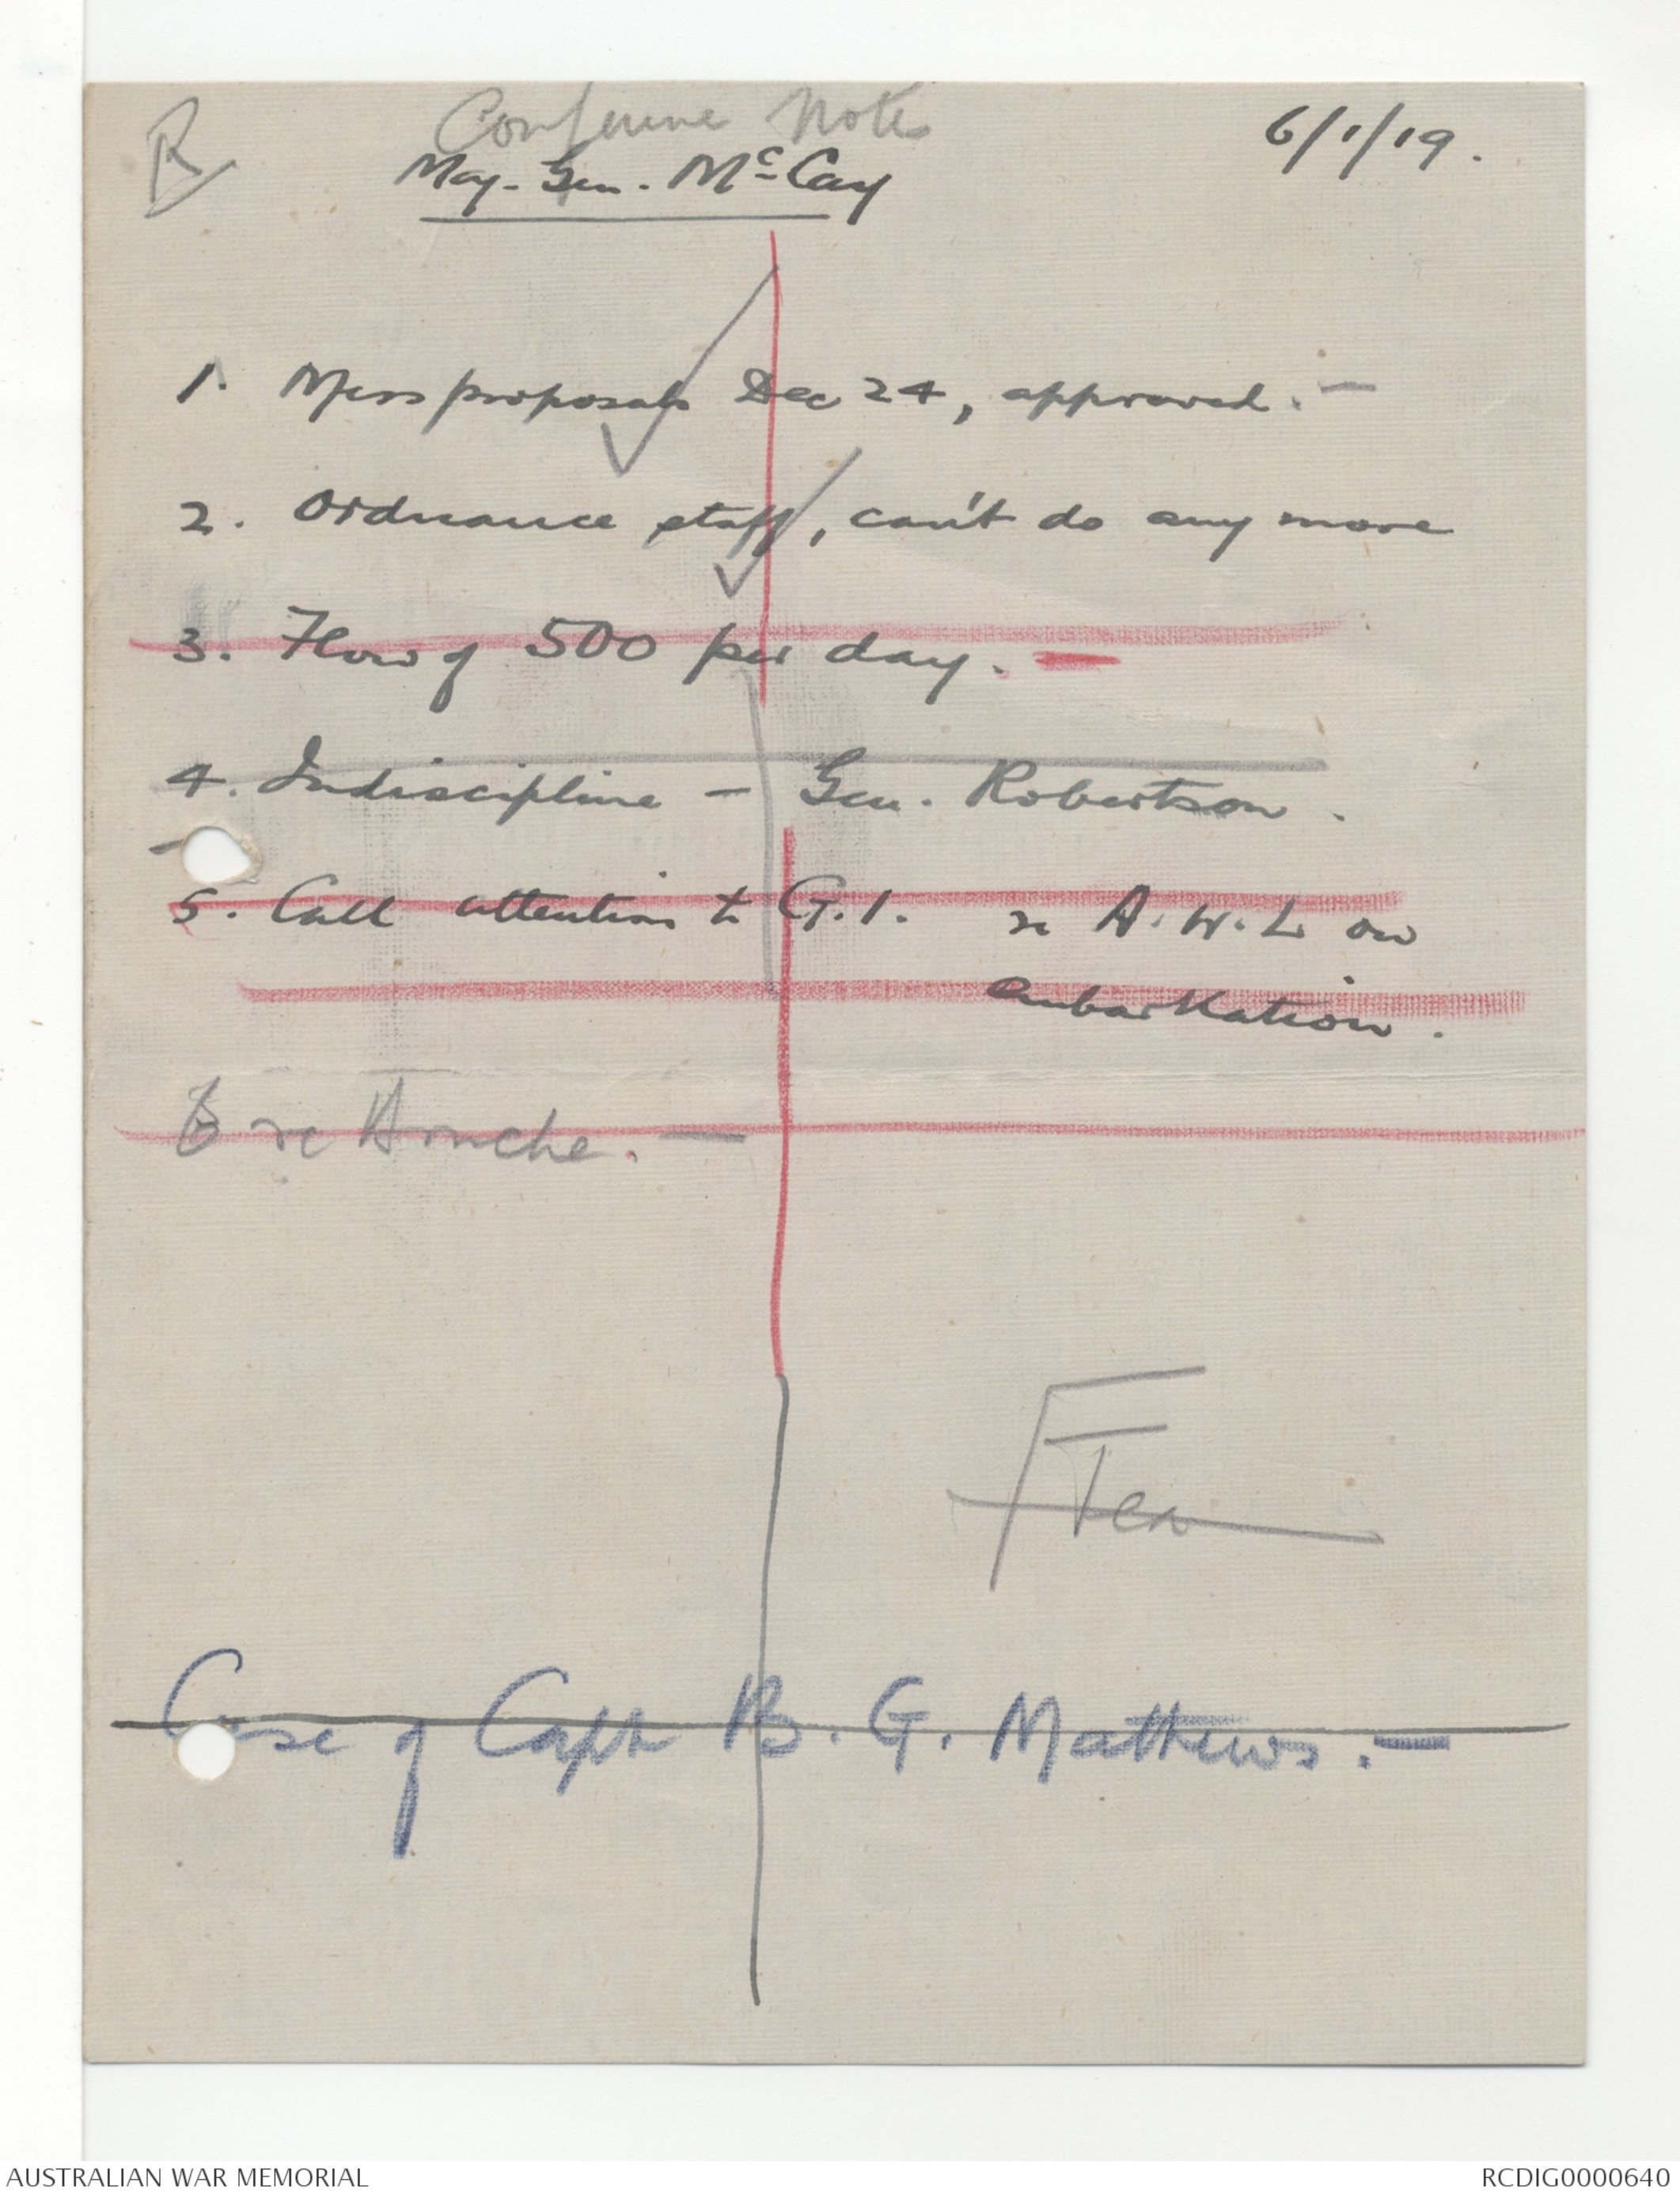 Conference Notes
6/1/19.
Maj. Gen. McCay
1. Mess proposals Dec 24, approved. —
2. Ordnance staff, can't do any more
3. Flow of 500 per day. —
4. Indiscipline — Gen. Robertson.
5. Call attention to G.1. re A.W.L on
embarkation.
re —
Case of Capt B. G. Mathews. —
AUSTRALIAN WAR MEMORIAL
RCDIG0000640